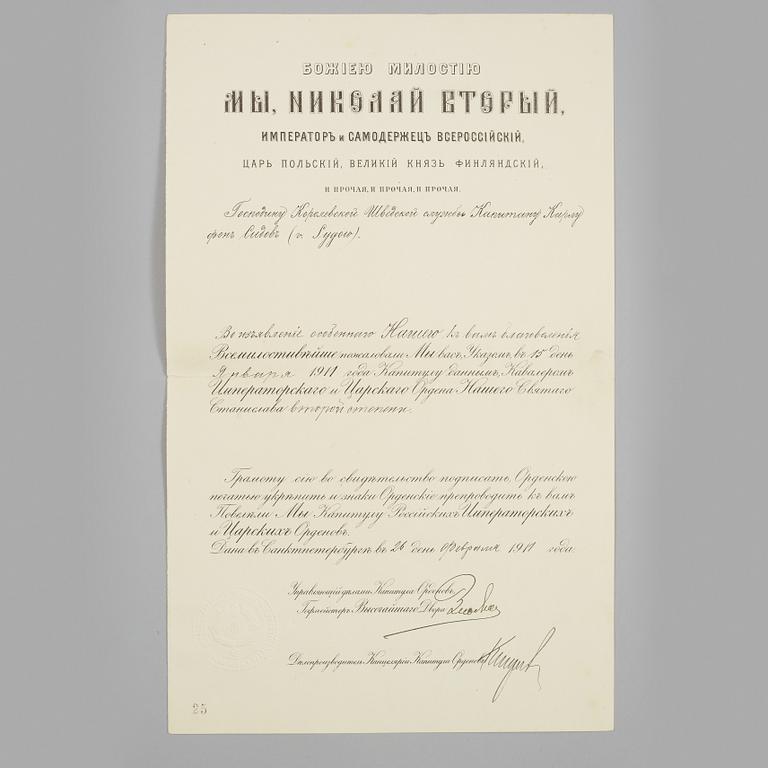 БОЖІЕЮ МИЛОСТІЮ
МЫ, НИКОЛАЙ ВТОРЫЙ,
ИМПЕРАТОРЪ и САМОДЕРЖЕЦЪ ВСЕРОССІЙСКІЙ,
ЦАРЬ ПОЛЬСКІЙ, ВЕЛИКІЙ КНЯЗЬ ФИНЛЯНДСКІЙ,
И ПРОЧАЯ, И ПРОЧАЯ, И ПРОЧАЯ.
Господину Королевской Шведской службы Капитану Карлу
фонъ Сидовъ (v. Sydow).
Во изъявленіе особеннаго Нашего къ вамъ благоволенія
Всемилостивѣйше пожаловали Мы васъ, Указомъ, въ 15 день
Января 1911 года Капитулу даннымъ, Кавалеромъ
Императорскаго и Царскаго Ордена Нашего Святаго
Станислава второй степени.
Грамоту сію во свидѣтельство подписать, Орденскою
печатью укрѣпить и знаки Орденскіе препроводить къ вамъ
Повелѣли Мы Капитулу Россійскихъ Императорскихъ
и Царскихъ Орденовъ.
Дана въ Санктпетербургѣ въ 26 день Февраля 1911 года.
Управляющій дѣлами Капитула Орденовъ,
Гофмейстеръ Высочайшаго Двора
Дѣлопроизводитель Канцеляріи Капитула Орденовъ
25